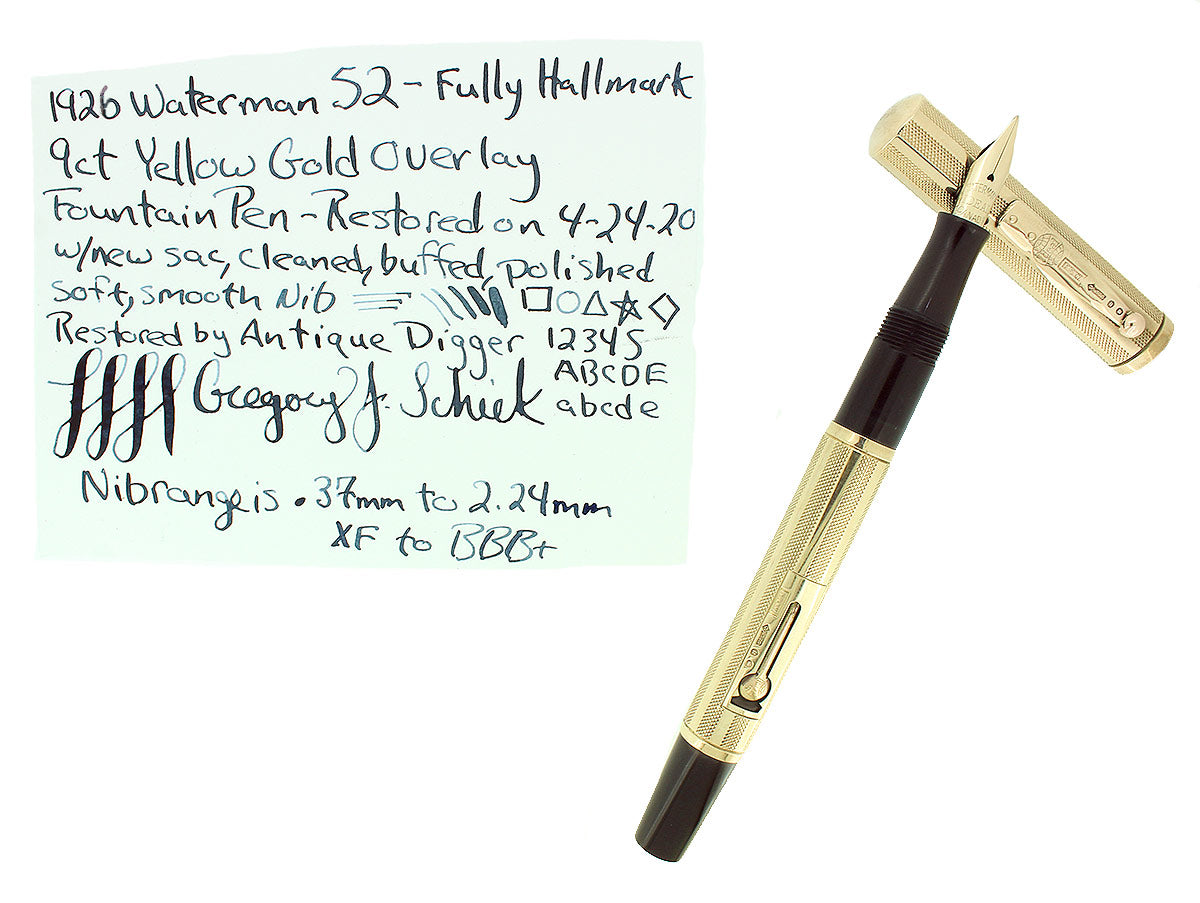 1926 Waterman 52 - Fully Hallmark
9ct Yellow Gold Overlay
Fountain Pen - Restored on 4-24-20
w/new sac, cleaned, buffed, polished
soft, smooth Nib
Restored by Antique Digger 12345
ABCDE
Gregory J. Schiek abcde
Nib range is .37mm to 2.24mm
XF to BBB+